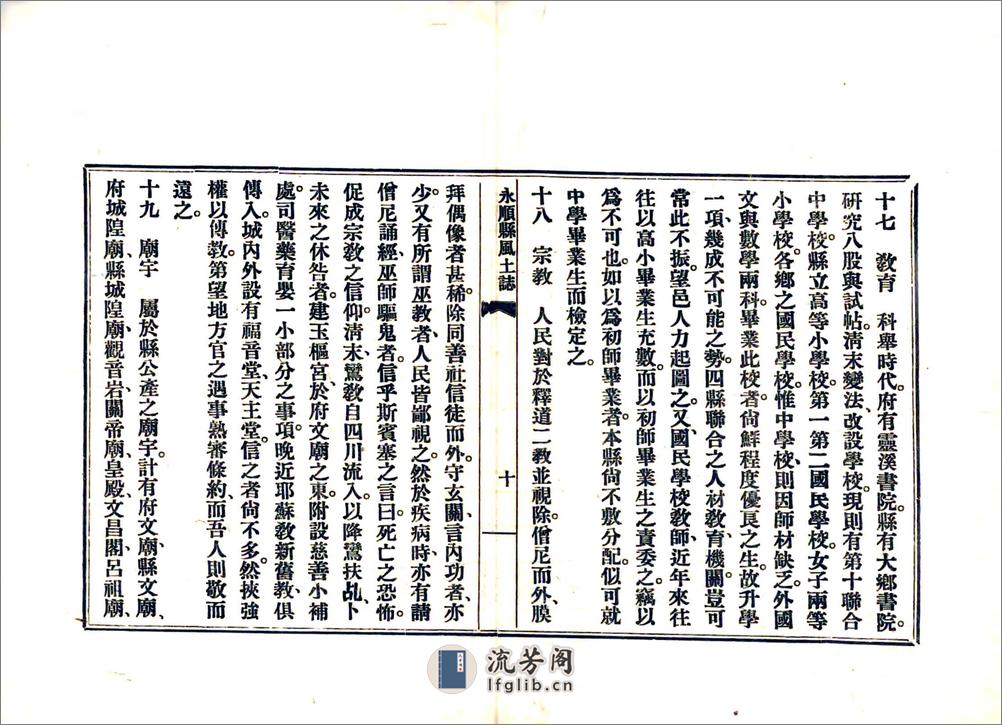 十七　教育　科舉時代、府有靈溪書院。縣有大鄉書院。
研究八股與試帖。清末變法、改設學校。現則有第十聯合
中學校。縣立高等小學校。第一第二國民學校。女子兩等
小學校。各鄉之國民學校。惟中學校、則因師材缺乏。外國
文與數學兩科。畢業此校者、尙鮮程度優良之生。故升學
一項、幾成不可能之勢。四縣聯合之人材教育機關、豈可
常此不振。望邑人力起圖之。又國民學校教師、近年來往
往以高小畢業生充數。而以初師畢業生之責委之。竊以
爲不可也。如以爲初師畢業者、本縣尙不敷分配。似可就
中學畢業生而檢定之。
十八　宗教　人民對於釋道二教並視。除僧尼而外、膜
永順縣風土誌
十
拜偶像者甚稀。除同善社信徒而外、守玄關、言內功者、亦
少。又有所謂巫教者、人民皆鄙視之。然於疾病時、亦有請
僧尼誦經、巫師驅鬼者。信乎斯賓塞之言曰、死亡之恐怖。
促成宗教之信仰。清末鸞教自四川流入。以降鸞扶乩、卜
未來之休咎者。建玉樞宮於府文廟之東。附設慈善小補
處。司醫藥育嬰一小部分之事項。晚近耶蘇教新舊教、俱
傳入城內外。設有福音堂、天主堂。信之者尙不多。然挾強
權以傳教。第望地方官之遇事熟審條約、而吾人則敬而
遠之。
十九　廟宇　屬於縣公產之廟宇。計有府文廟、縣文廟、
府城隍廟、縣城隍廟、觀音岩、關帝廟、皇殿、文昌閣、呂祖廟、
流芳阁
lfglib.cn